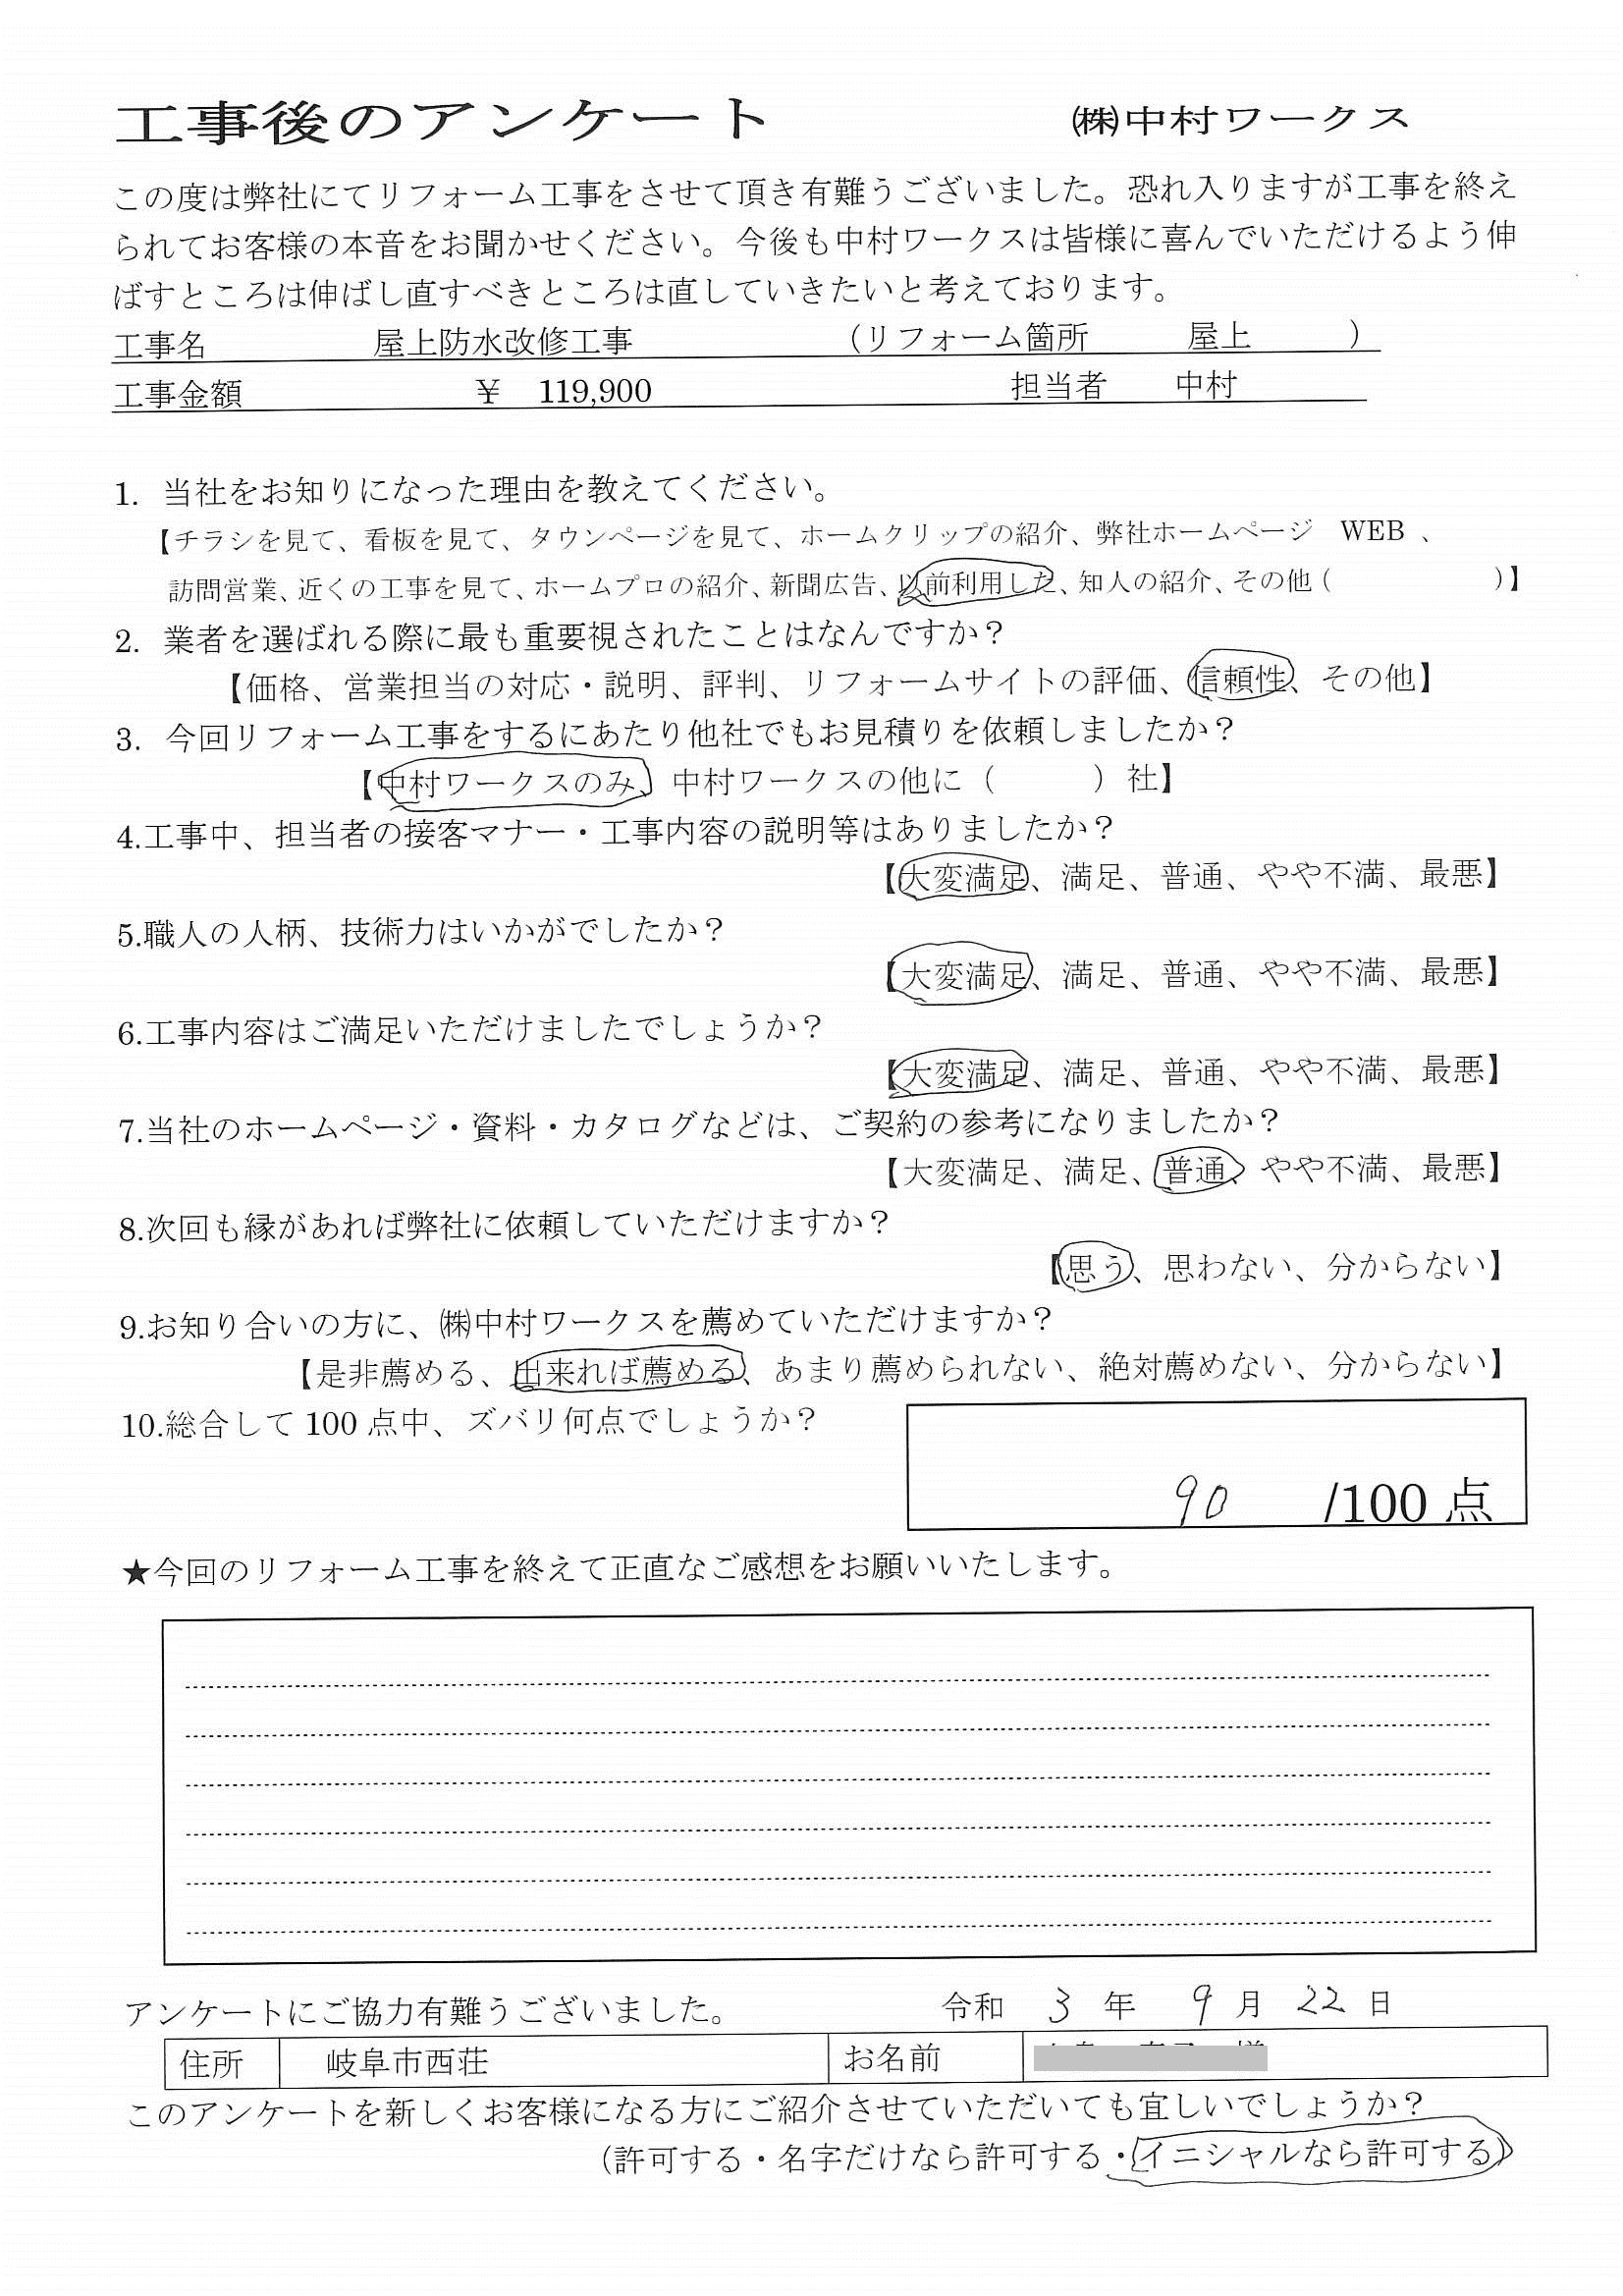 工事後のアンケート ㈱中村ワークス
この度は弊社にてリフォーム工事をさせて頂き有難うございました。恐れ入りますが工事を終え
られてお客様の本音をお聞かせください。今後も中村ワークスは皆様に喜んでいただけるよう伸
ばすところは伸ばし直すべきところは直していきたいと考えております。
工事名 屋上防水改修工事 （リフォーム箇所 屋上 ）
工事金額 ¥ 119,900 担当者 中村
1. 当社をお知りになった理由を教えてください。
【チラシを見て、看板を見て、タウンページを見て、ホームクリップの紹介、弊社ホームページ WEB 、
訪問営業、近くの工事を見て、ホームプロの紹介、新聞広告、以前利用した、知人の紹介、その他（ ）】
2. 業者を選ばれる際に最も重要視されたことはなんですか？
【価格、営業担当の対応・説明、評判、リフォームサイトの評価、信頼性、その他】
3. 今回リフォーム工事をするにあたり他社でもお見積りを依頼しましたか？
【中村ワークスのみ、中村ワークスの他に（ ）社】
4.工事中、担当者の接客マナー・工事内容の説明等はありましたか？
【大変満足、満足、普通、やや不満、最悪】
5.職人の人柄、技術力はいかがでしたか？
【大変満足、満足、普通、やや不満、最悪】
6.工事内容はご満足いただけましたでしょうか？
【大変満足、満足、普通、やや不満、最悪】
7.当社のホームページ・資料・カタログなどは、ご契約の参考になりましたか？
【大変満足、満足、普通、やや不満、最悪】
8.次回も縁があれば弊社に依頼していただけますか？
【思う、思わない、分からない】
9.お知り合いの方に、㈱中村ワークスを薦めていただけますか？
【是非薦める、出来れば薦める、あまり薦められない、絶対薦めない、分からない】
10.総合して 100 点中、ズバリ何点でしょうか？
90 /100 点
★今回のリフォーム工事を終えて正直なご感想をお願いいたします。
アンケートにご協力有難うございました。 令和 3 年 9 月 22 日
住所 岐阜市西荘 お名前
このアンケートを新しくお客様になる方にご紹介させていただいても宜しいでしょうか？
（許可する・名字だけなら許可する・イニシャルなら許可する）